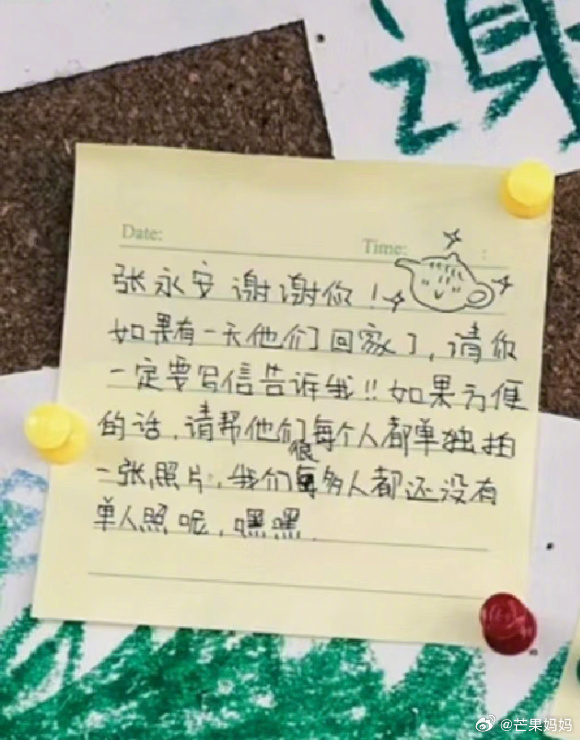 谢
Date:
Time: :
张永安谢谢你！
如果有一天他们回家了，请你
一定要写信告诉我!!如果方便
的话，请帮他们每个人都单独拍
一张照片，我们很多人都还没有
单人照呢，嘿嘿.
@芒果妈妈